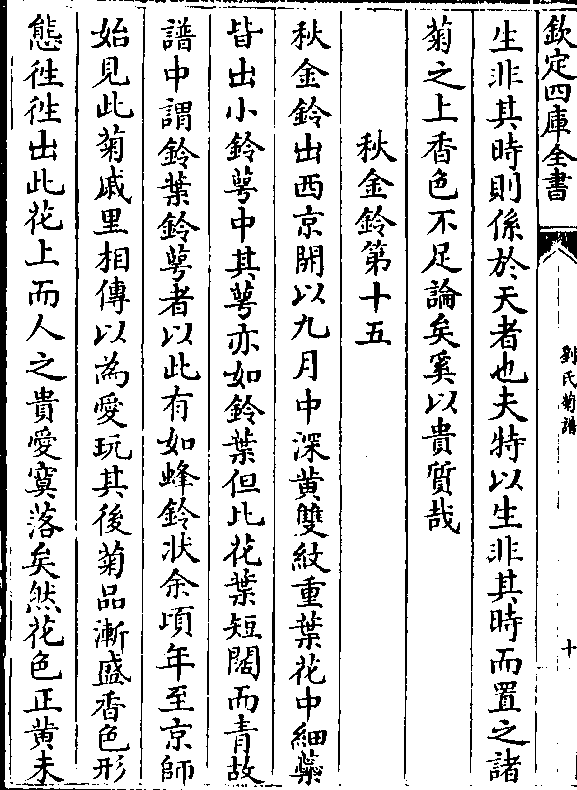 欽定四庫全書
劉氏菊譜
十
生非其時則係於天者也夫特以生非其時而置之諸
菊之上香色不足論矣奚以貴質哉
秋金鈴第十五
秋金鈴出西京開以九月中深黃雙紋重葉花中細蘂
皆出小鈴萼中其萼亦如鈴葉但比花葉短闊而青故
譜中謂鈴葉鈴萼者以此有如蜂鈴狀余頃年至京師
始見此菊戚里相傳以為愛玩其後菊品漸盛香色形
態徃徃出此花上而人之貴愛寞落矣然花色正黃未